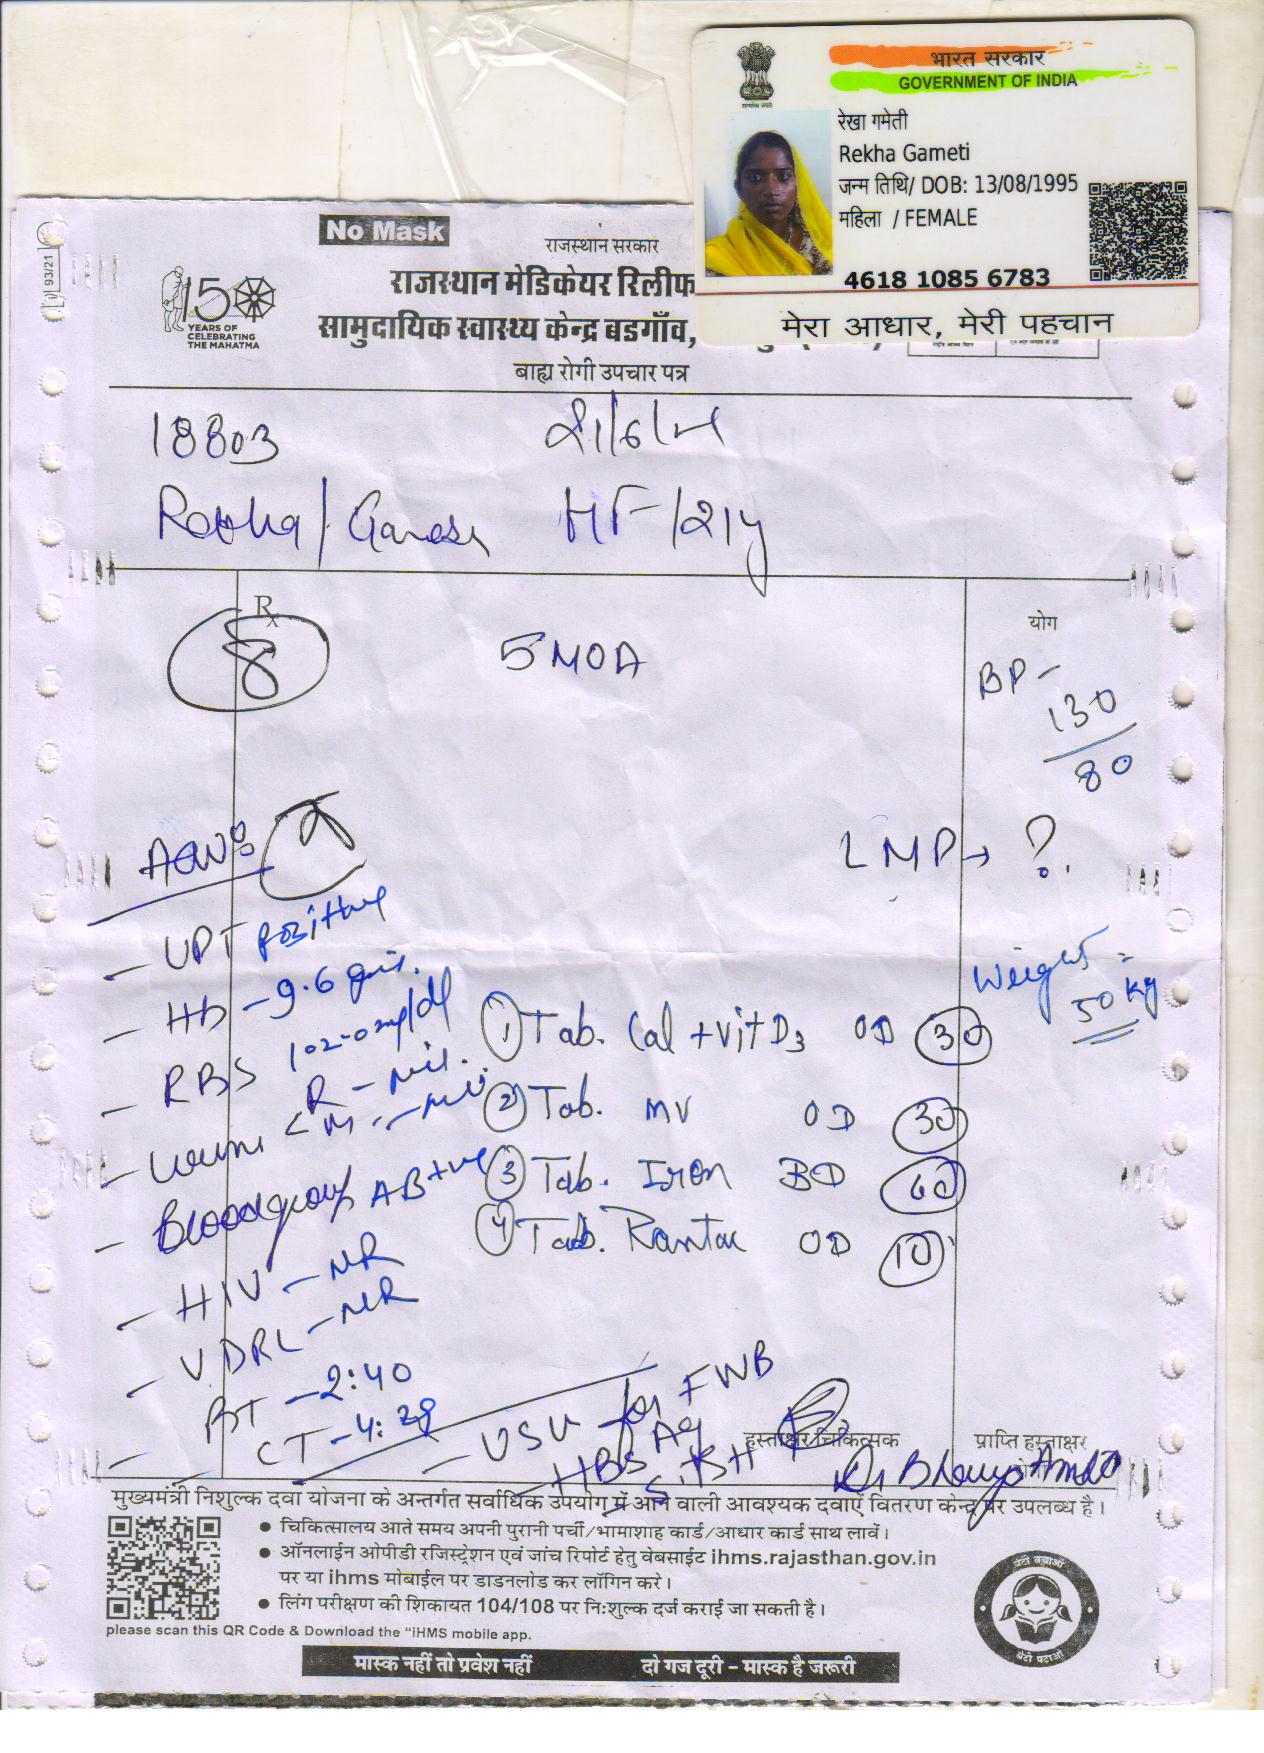 भारत सरकार
GOVERNMENT OF INDIA
रेखा गमेती
Rekha Gameti
जन्म तिथि/ DOB: 13/08/1995
महिला / FEMALE
4618 1085 6783
मेरा आधार, मेरी पहचान
93/21
No Mask
राजस्थान सरकार
150
YEARS OF
CELEBRATING
THE MAHATMA
राजस्थान मेडिकेयर रिलीफ
सामुदायिक स्वास्थ्य केन्द्र बडगाँव,
बाह्य रोगी उपचार पत्र
18803
Rekha / Ganesh HF/21y
Rx
8
5 MOA
योग
BP-
130
80
LMP → ?
Weight =
50 kg
- UPT positive
- Hb - 9.6 gms.
- RBS 102.0 mg/dl
- Urine
- Bloodgroup AB+ve
- HIV - NR
- VDRL - NR
BT - 2:40
CT -
① Tab. Cal + vit D3 OD 30
② Tab. MV OD 30
③ Tab. Iron BD 60
④ Tab. Rantac OD 10
- USG for FWB
HBS Ag
हस्ताक्षर चिकित्सक
प्राप्ति हस्ताक्षर
मुख्यमंत्री निशुल्क दवा योजना के अन्तर्गत सर्वाधिक उपयोग में आने वाली आवश्यक दवाऐं वितरण केन्द्र पर उपलब्ध है।
• चिकित्सालय आते समय अपनी पुरानी पर्ची/भामाशाह कार्ड/आधार कार्ड साथ लावें।
• ऑनलाईन ओपीडी रजिस्ट्रेशन एवं जांच रिपोर्ट हेतु वेबसाईट ihms.rajasthan.gov.in
पर या ihms मोबाईल पर डाडनलोड कर लॉगिन करे।
• लिंग परीक्षण की शिकायत 104/108 पर निःशुल्क दर्ज कराई जा सकती है।
please scan this QR Code & Download the "iHMS mobile app.
बेटी बचाओ
बेटी पढाओ
मास्क नहीं तो प्रवेश नहीं दो गज दूरी – मास्क है जरूरी